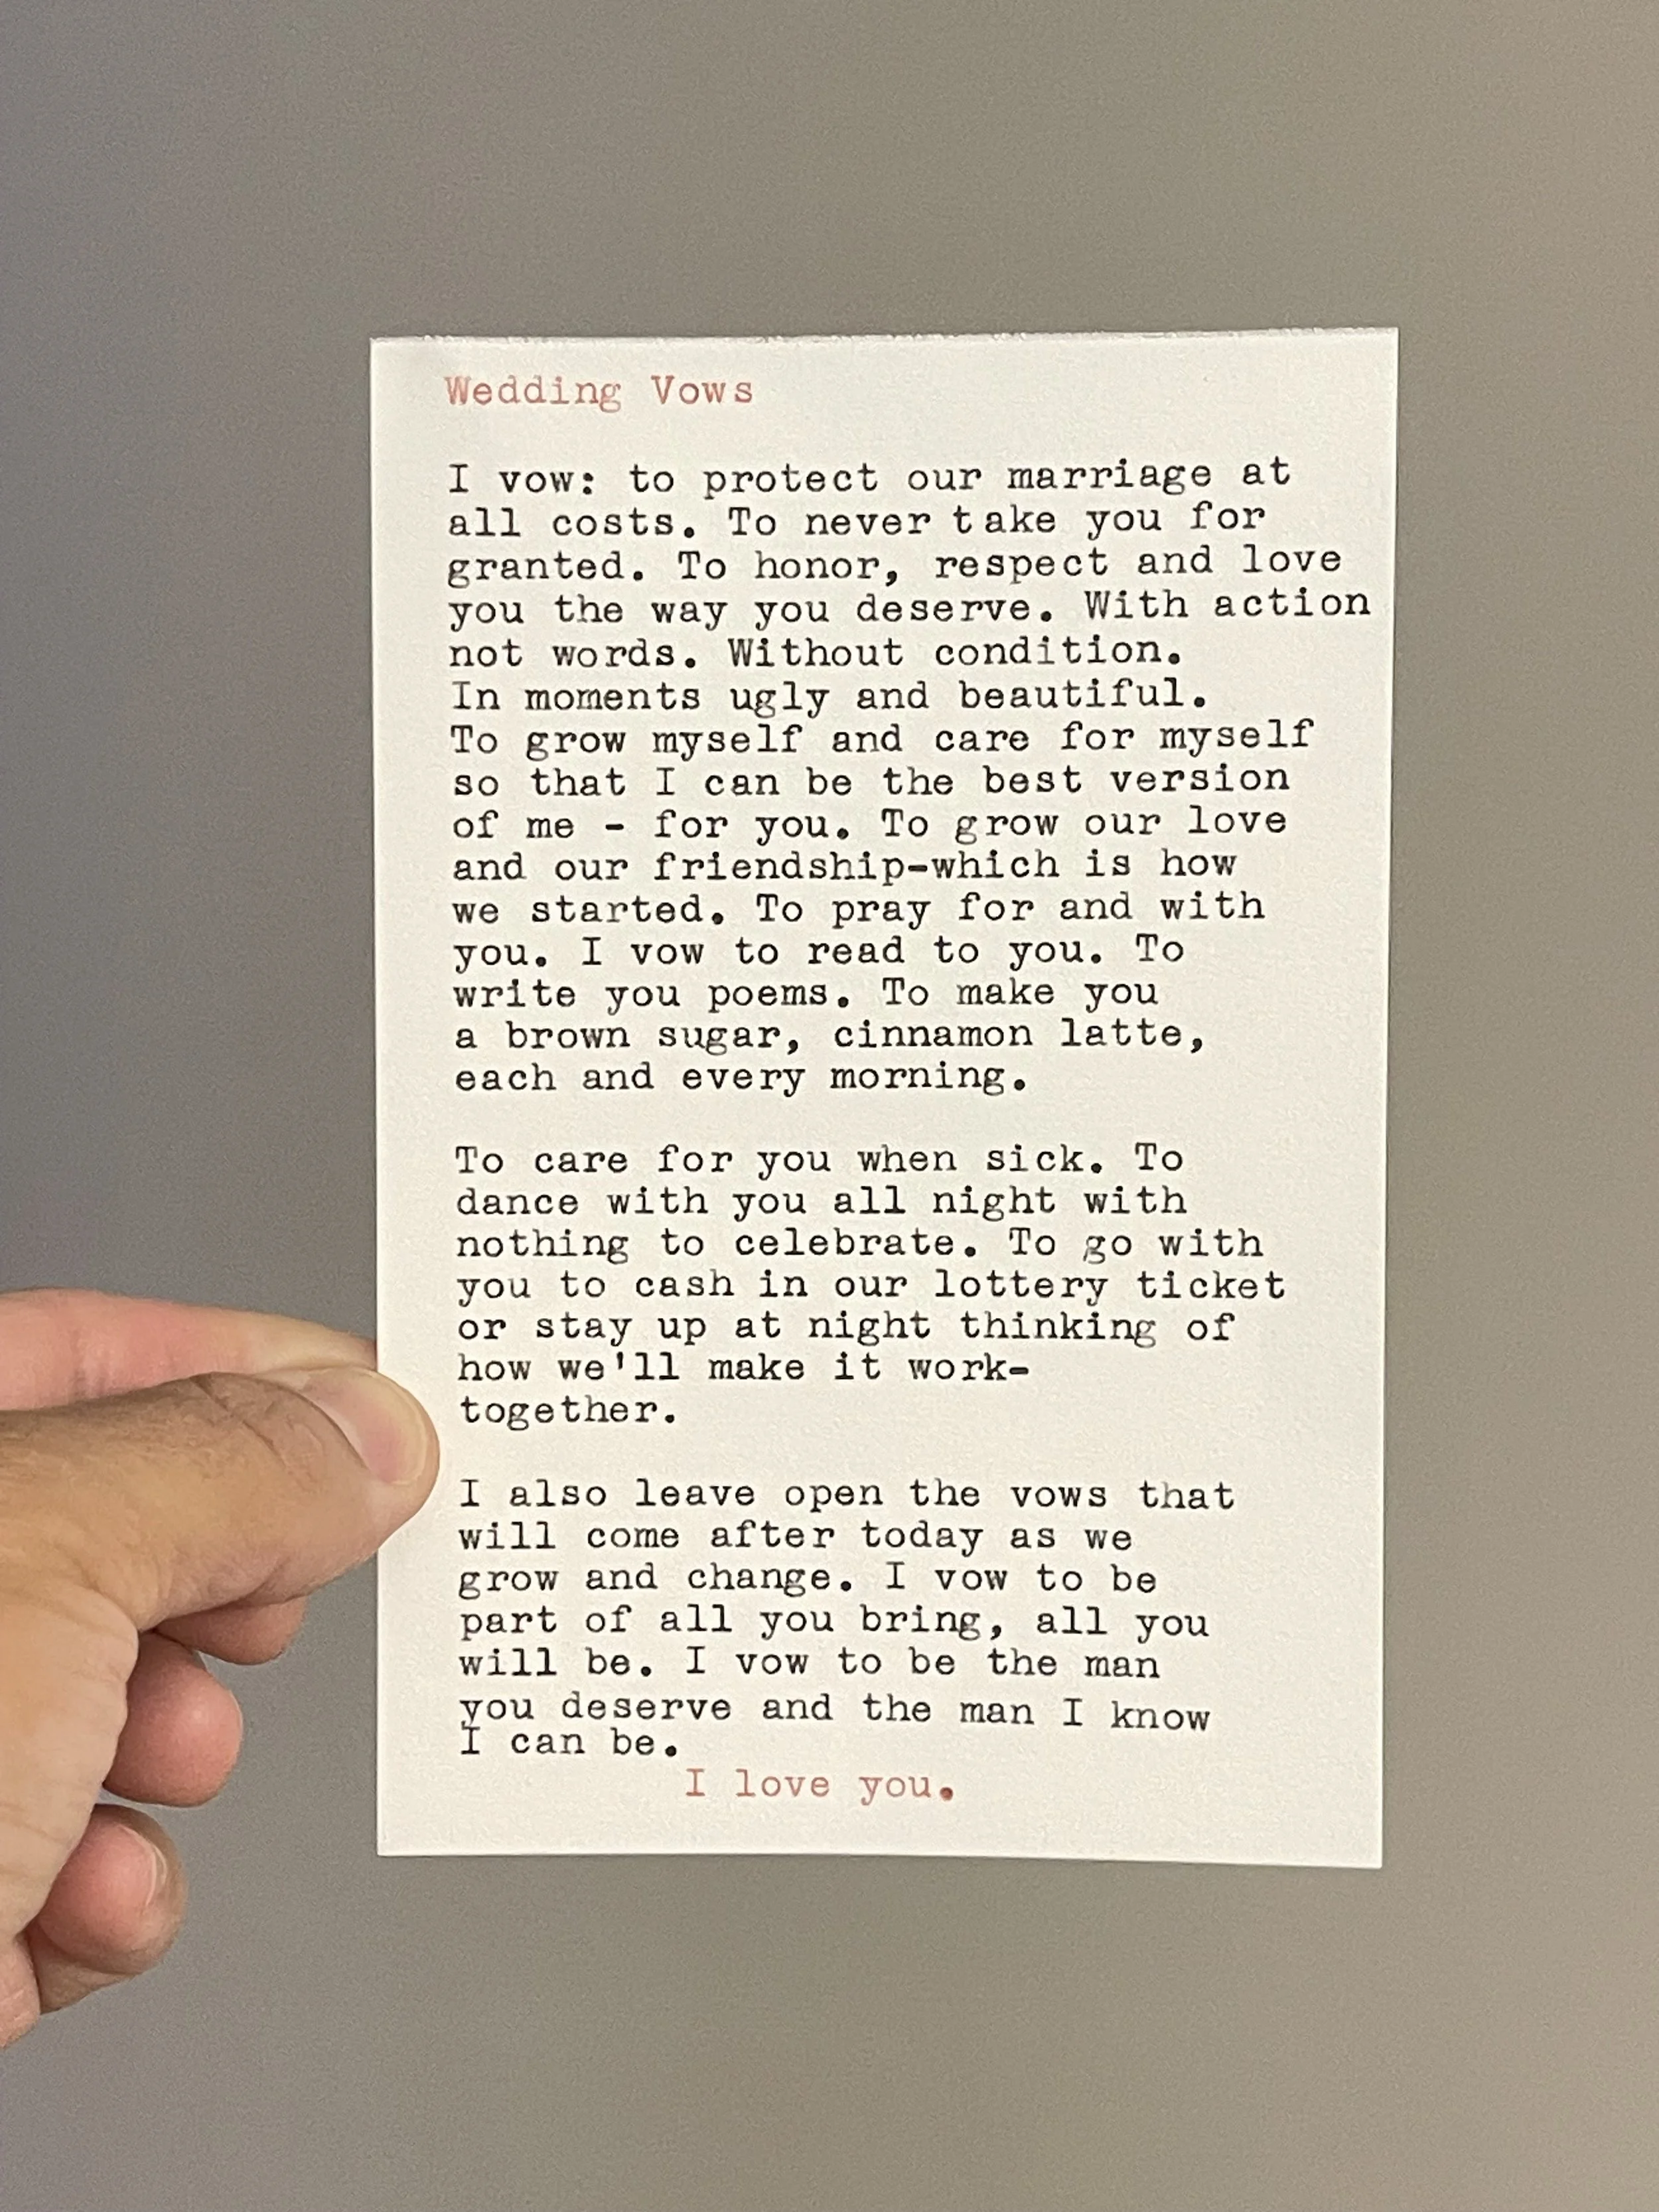 Wedding Vows
I vow: to protect our marriage at
all costs. To never take you for
granted. To honor, respect and love
you the way you deserve. With action
not words. Without condition.
In moments ugly and beautiful.
To grow myself and care for myself
so that I can be the best version
of me - for you. To grow our love
and our friendship-which is how
we started. To pray for and with
you. I vow to read to you. To
write you poems. To make you
a brown sugar, cinnamon latte,
each and every morning.
To care for you when sick. To
dance with you all night with
nothing to celebrate. To go with
you to cash in our lottery ticket
or stay up at night thinking of
how we'll make it work-
together.
I also leave open the vows that
will come after today as we
grow and change. I vow to be
part of all you bring, all you
will be. I vow to be the man
you deserve and the man I know
I can be.
I love you.